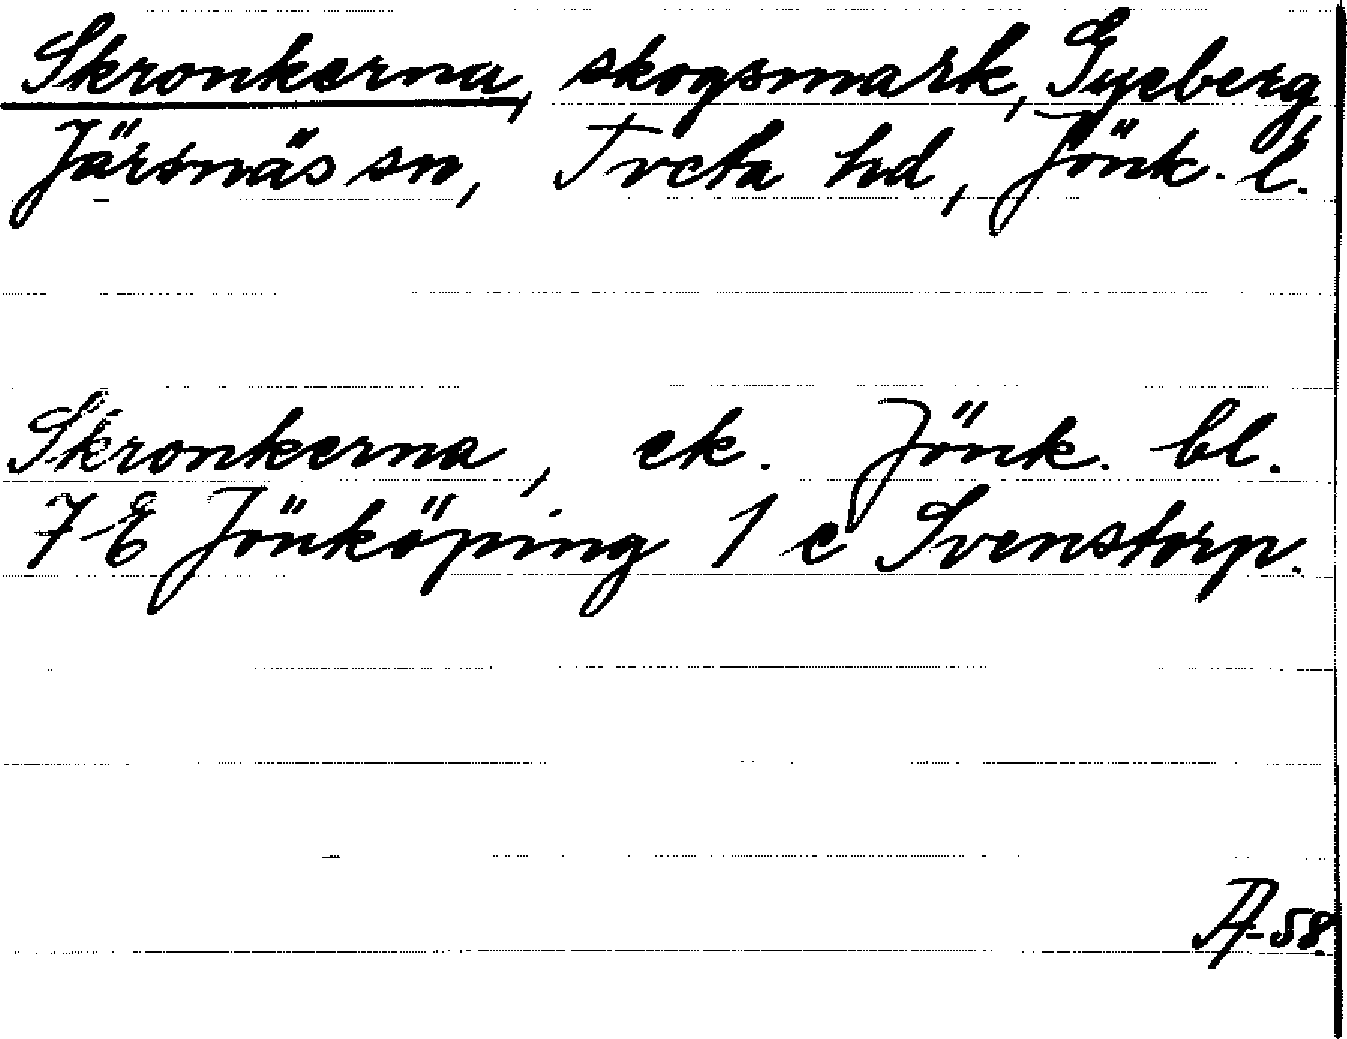 Skronkerna, skogsmark, Gyeberg,
Järsnäs sn, Tveta hd, Jönk. l.
Skronkerna, ek. Jönk. bl.
7 E Jönköping 1 e Svenstorp.
-58.